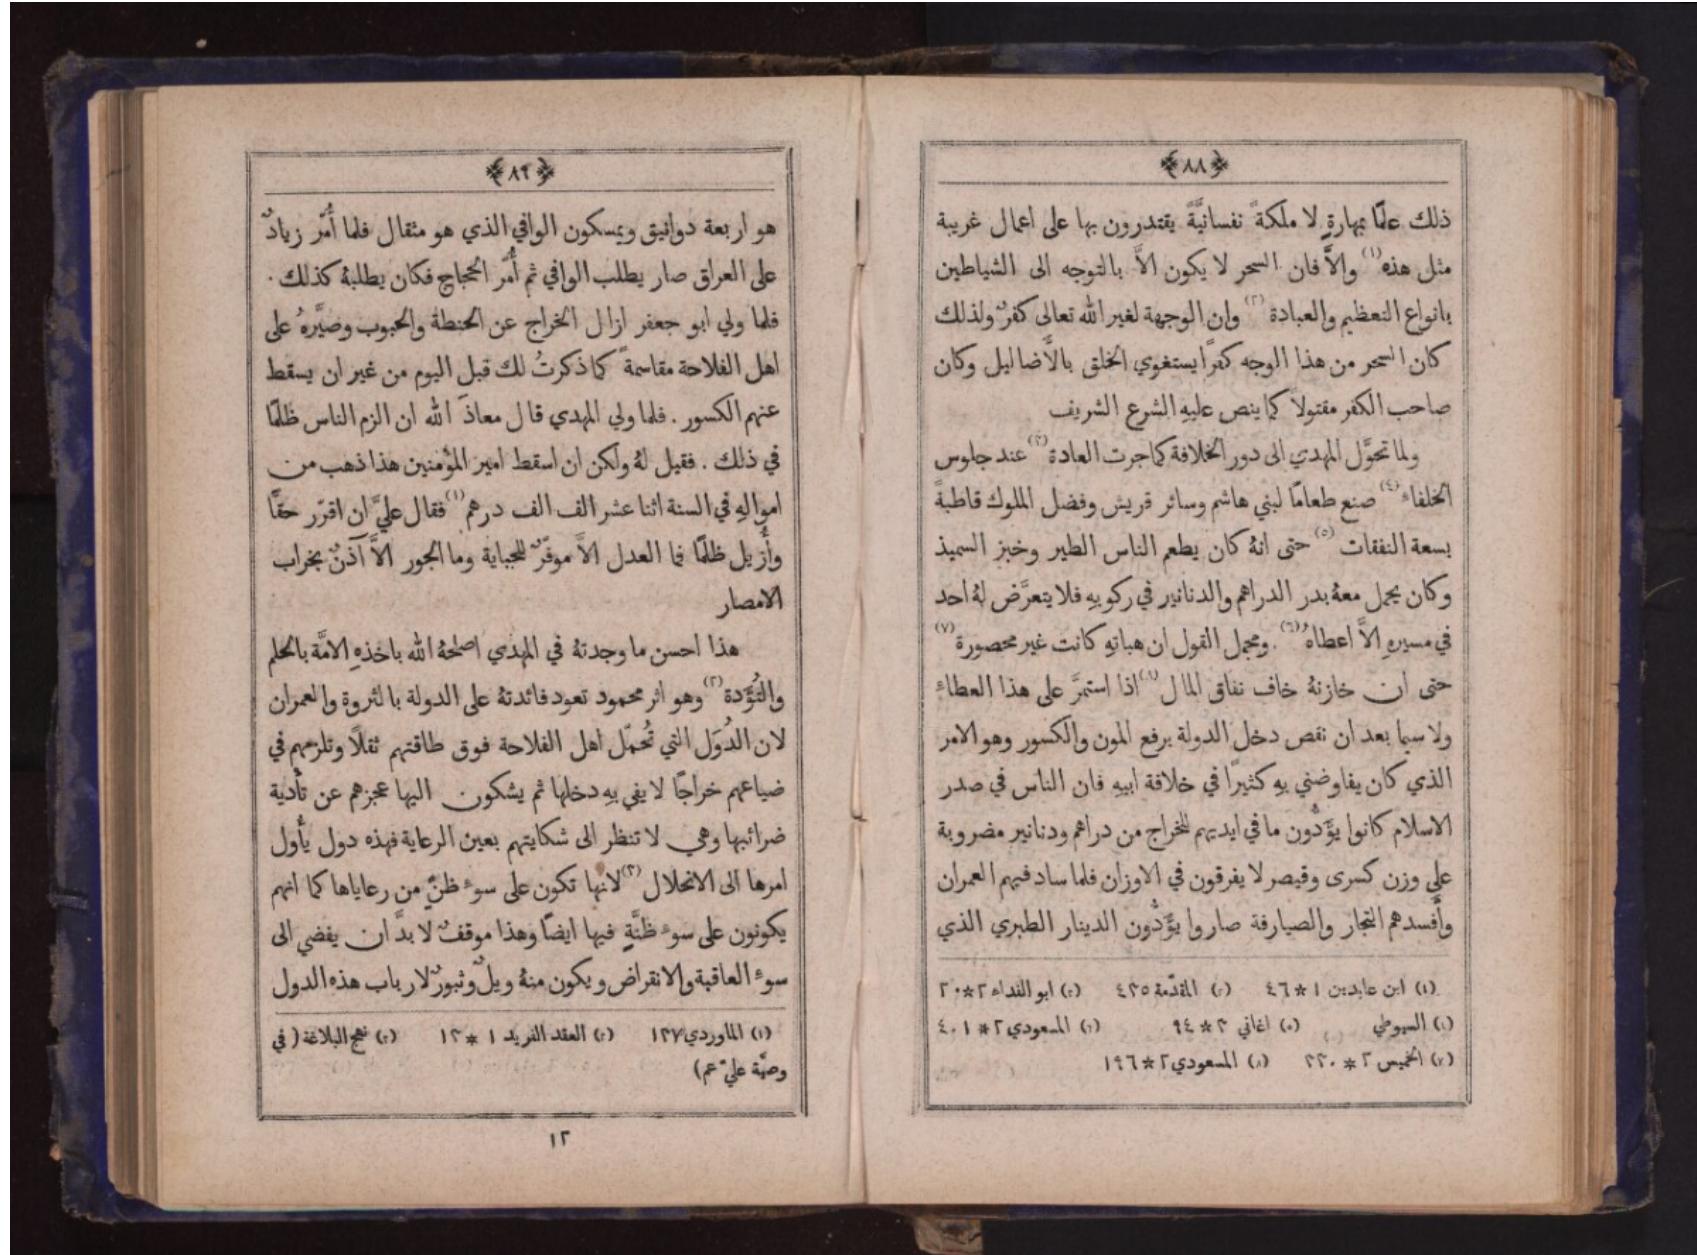 ﴿٨٨﴾
ذلك علمًا بمهارةٍ لا ملكةً نفسانيَّةً يقتدرون بها على اعمال غريبة
مثل هذه(١) والَّا فان السحر لا يكون الاَّ بالتوجه الى الشياطين
بانواع التعظيم والعبادة(٢) وان الوجهة لغير الله تعالى كفرٌ ولذلك
كان السحر من هذا الوجه كفرًا يستغوي الخلق بالأَضاليل وكان
صاحب الكفر مقتولاً كما ينص عليهِ الشرع الشريف
ولما تحوَّل المهدي الى دور الخلافة كما جرت العادة(٣) عند جلوس
الخلفاء(٤) صنع طعامًا لبني هاشم وسائر قريش وفضل الملوك قاطبةً
بسعة النفقات(٥) حتى انهُ كان يطعم الناس الطير وخبز السميذ
وكان يحمل معهُ بدر الدراهم والدنانير في ركوبهِ فلا يتعرَّض لهُ احد
في مسيرهِ الاَّ اعطاهُ(٦). ومجمل القول ان هباتهِ كانت غير محصورة(٧)
حتى ان خازنهُ خاف نفاق المال(٨) اذا استمرَّ على هذا العطاءِ
ولا سيما بعد ان نقص دخل الدولة برفع المون والكسور وهو الامر
الذي كان يفاوضني بهِ كثيرًا في خلافة ابيهِ فان الناس في صدر
الاسلام كانوا يؤَدُّون ما في ايديهم للخراج من دراهم ودنانير مضروبة
على وزن كسرى وقيصر لا يفرقون في الاوزان فلما ساد فيهم العمران
وأَفسدهم التجار والصيارفة صاروا يؤَدُّون الدينار الطبري الذي
(١) ابن عابدين ١*٤٦ (٢) المقدّمة ٤٣٥ (٣) ابو الفداء ٢*٢٠
(٤) السيوطي (٥) اغاني ٣*٩٤ (٦) المسعودي ٢*٤٠١
(٧) الخميس ٢*٣٣٠ (٨) المسعودي ٢*١٩٦
﴿٨٩﴾
هو اربعة دوانيق ويمسكون الوافي الذي هو مثقال فلما أُمّر زيادٌ
على العراق صار يطلب الوافي ثم أُمّر الحجاج فكان يطلبهُ كذلك.
فلما ولي ابو جعفر ازال الخراج عن الحنطة والحبوب وصيَّرهُ على
اهل الفلاحة مقاسمةً كما ذكرتُ لك قبل اليوم من غير ان يسقط
عنهم الكسور. فلما ولي المهدي قال معاذَ الله ان الزم الناس ظلمًا
في ذلك. فقيل لهُ ولكن ان اسقط امير المؤمنين هذا ذهب من
اموالهِ في السنة اثنا عشر الف الف درهم(١) فقال عليَّ ان اقرّر حقًّا
وأُزيل ظلمًا فما العدل الاَّ موفّرٌ للجباية وما الجور الاَّ آذنٌ بخراب
الامصار
هذا احسن ما وجدتهُ في المهدي اصلحهُ الله باخذهِ الامَّة بالحلم
والتُؤَدة(٢) وهو اثر محمود تعود فائدتهُ على الدولة بالثروة والعمران
لان الدُوَل التي تُحمّل اهل الفلاحة فوق طاقتهم ثقلًا وتلزمهم في
ضياعهم خراجًا لا يفي بهِ دخلها ثم يشكون اليها عجزهم عن تأْدية
ضرائبها وهي لا تنظر الى شكايتهم بعين الرعاية فهذه دول يأُول
امرها الى الانحلال(٣) لانها تكون على سوءِ ظنّ من رعاياها كما انهم
يكونون على سوءِ ظنَّةٍ فيها ايضًا وهذا موقفٌ لا بدَّ ان يفضي الى
سوءِ العاقبة والانقراض ويكون منهُ ويلٌ وثبورٌ لارباب هذه الدول
(١) الماوردي ١٣٧ (٢) العقد الفريد ١*١٣ (٣) نهج البلاغة (في
وصيَّة عليّ عم)
١٢